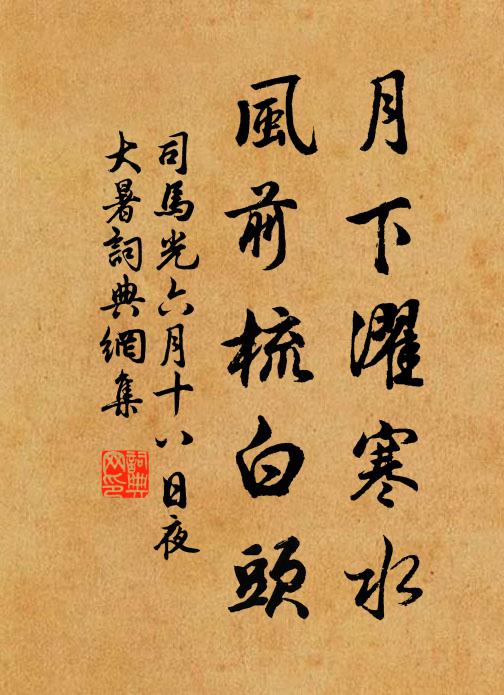 月下濯寒水
風前梳白頭
司馬光六月十八日夜
大暑詞典網集
詞典网印